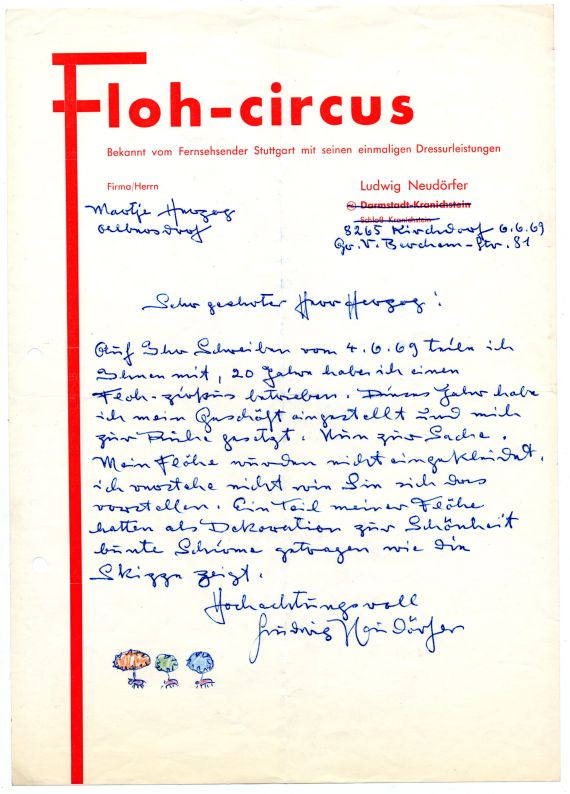 Floh-circus
Bekannt vom Fernsehsender Stuttgart mit seinen einmaligen Dressurleistungen
Firma/Herrn
Ludwig Neudörfer
Darmstadt-Kranichstein
Schloß Kranichstein
Martje Herzog
8265 Kirchdorf 6.6.69
Gr. V. Berchem-Str. 81
Sehr geehrter Herr Herzog!
Auf Ihr Schreiben vom 4.6.69 teile ich
Ihnen mit, 20 Jahre habe ich einen
Floh-zirkus betrieben. Dieses Jahr habe
ich mein Geschäft eingestellt und mich
zur Ruhe gesetzt. Nun zur Sache.
Mein Flöhe wurden nicht eingekleidet,
ich verstehe nicht wie Sie sich das
vorstellen. Ein Teil meiner Flöhe
hatten als Dekoration zur Schönheit
bunte Schirme getragen wie die
Skizze zeigt.
Hochachtungsvoll
Ludwig Neudörfer